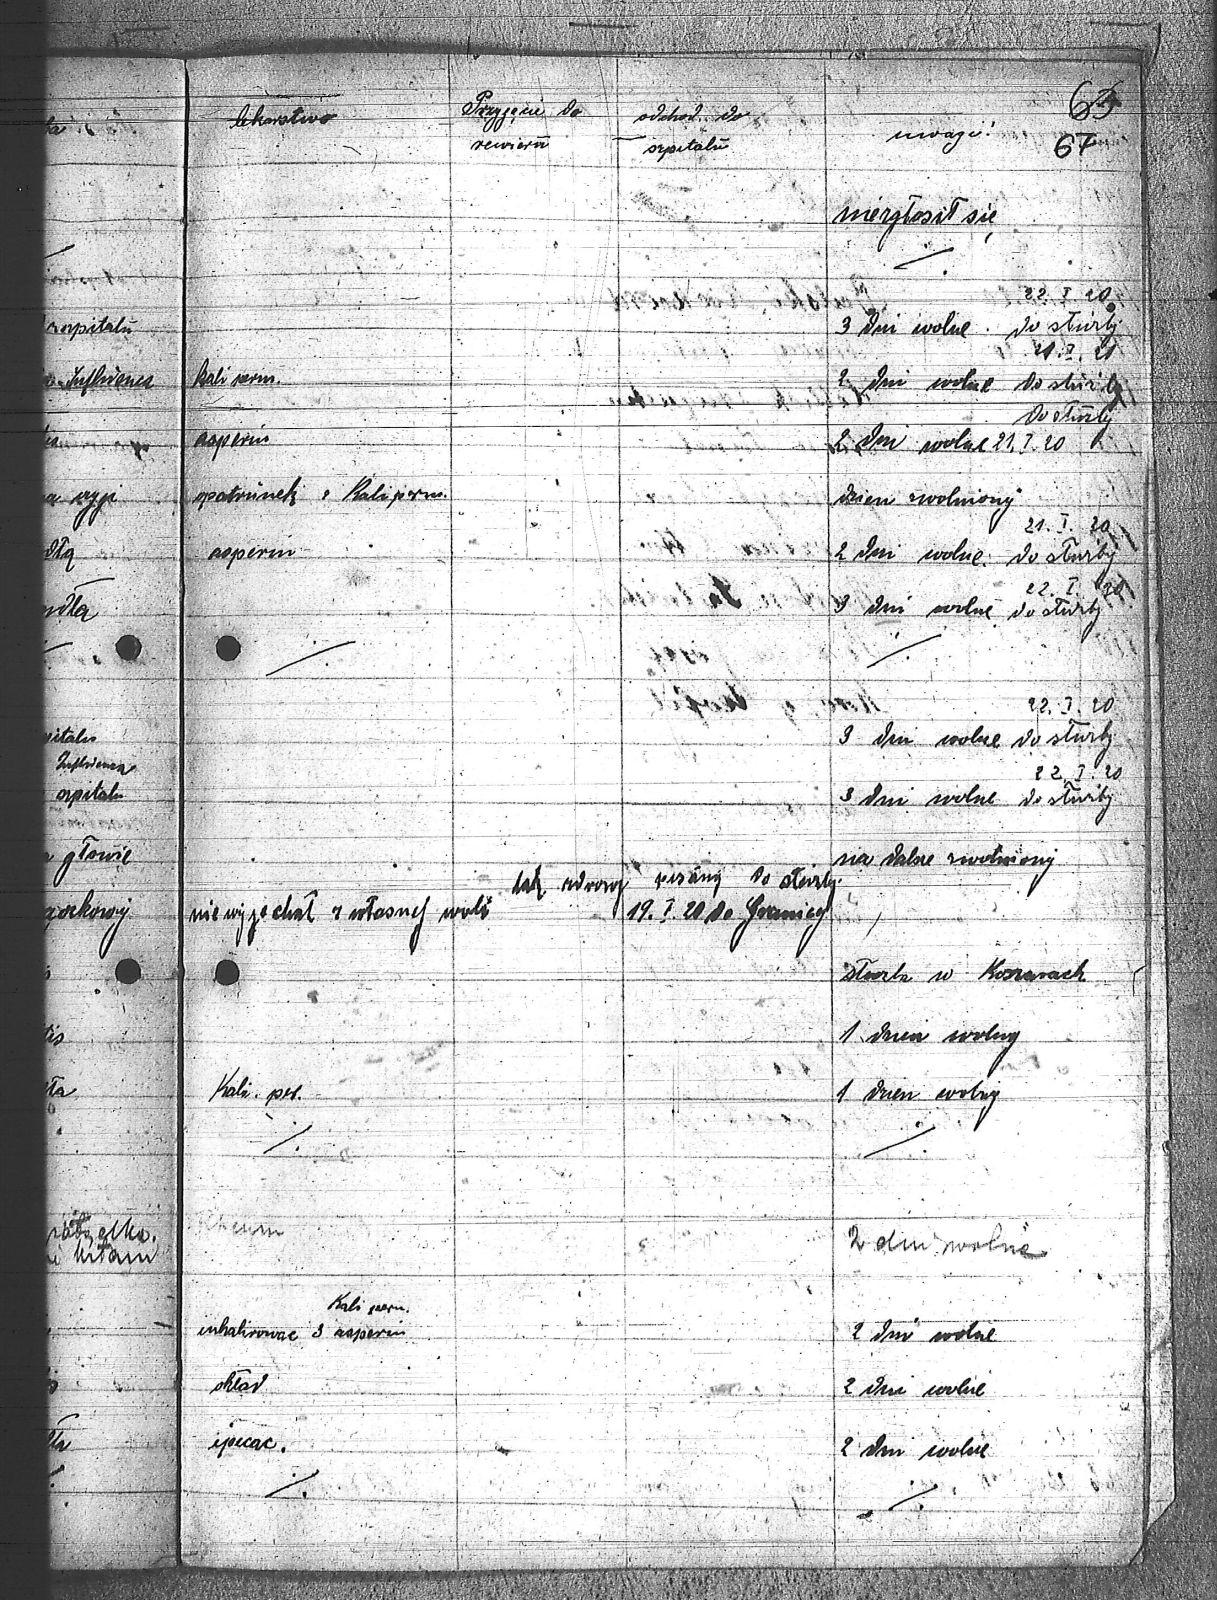 lekarstwo Przyjęcie do odchod. do uwagi 65
rewiera szpitalu 67
niezgłosił się
22. I. 20
szpitalu 3 dni wolne. do służby
21. I. 20
Influenca Kali perm. 2 dni wolne do służby
do służby
asperin 2 dni wolne 21. I. 20
opatrunek i Kali perm. dzien zwolniony
21. I. 20
asperin 2 dni wolne. do służby
22. I. 20
3 dni wolne do służby
22. I. 20
3 dni wolne do służby
Influenca 22. I. 20
szpitalu 3 dni wolne do służby
głowie na dalsze zwolniony
jak zdrowy pisany do służby
nie wyjechał z własnej woli 19. I. 20 do Granicy
służba w Koszarach
1 dzien wolny
Kali. per. 1 dzien wolny
Rheum 2 dni wolne
Kali perm.
inhalirowac 3 asperin 2 dni wolne
okład 2 dni wolne
ipecac. 2 dni wolne